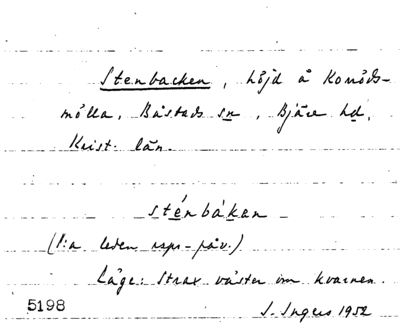 Stenbacken, höjd å Konőds-
mölla, Båstads sn, Bjäre hd,
Krist. län.
sténbákan
(1:a leden
Läge: Strax väster om kvarnen.
5198 S. Ingers 1952